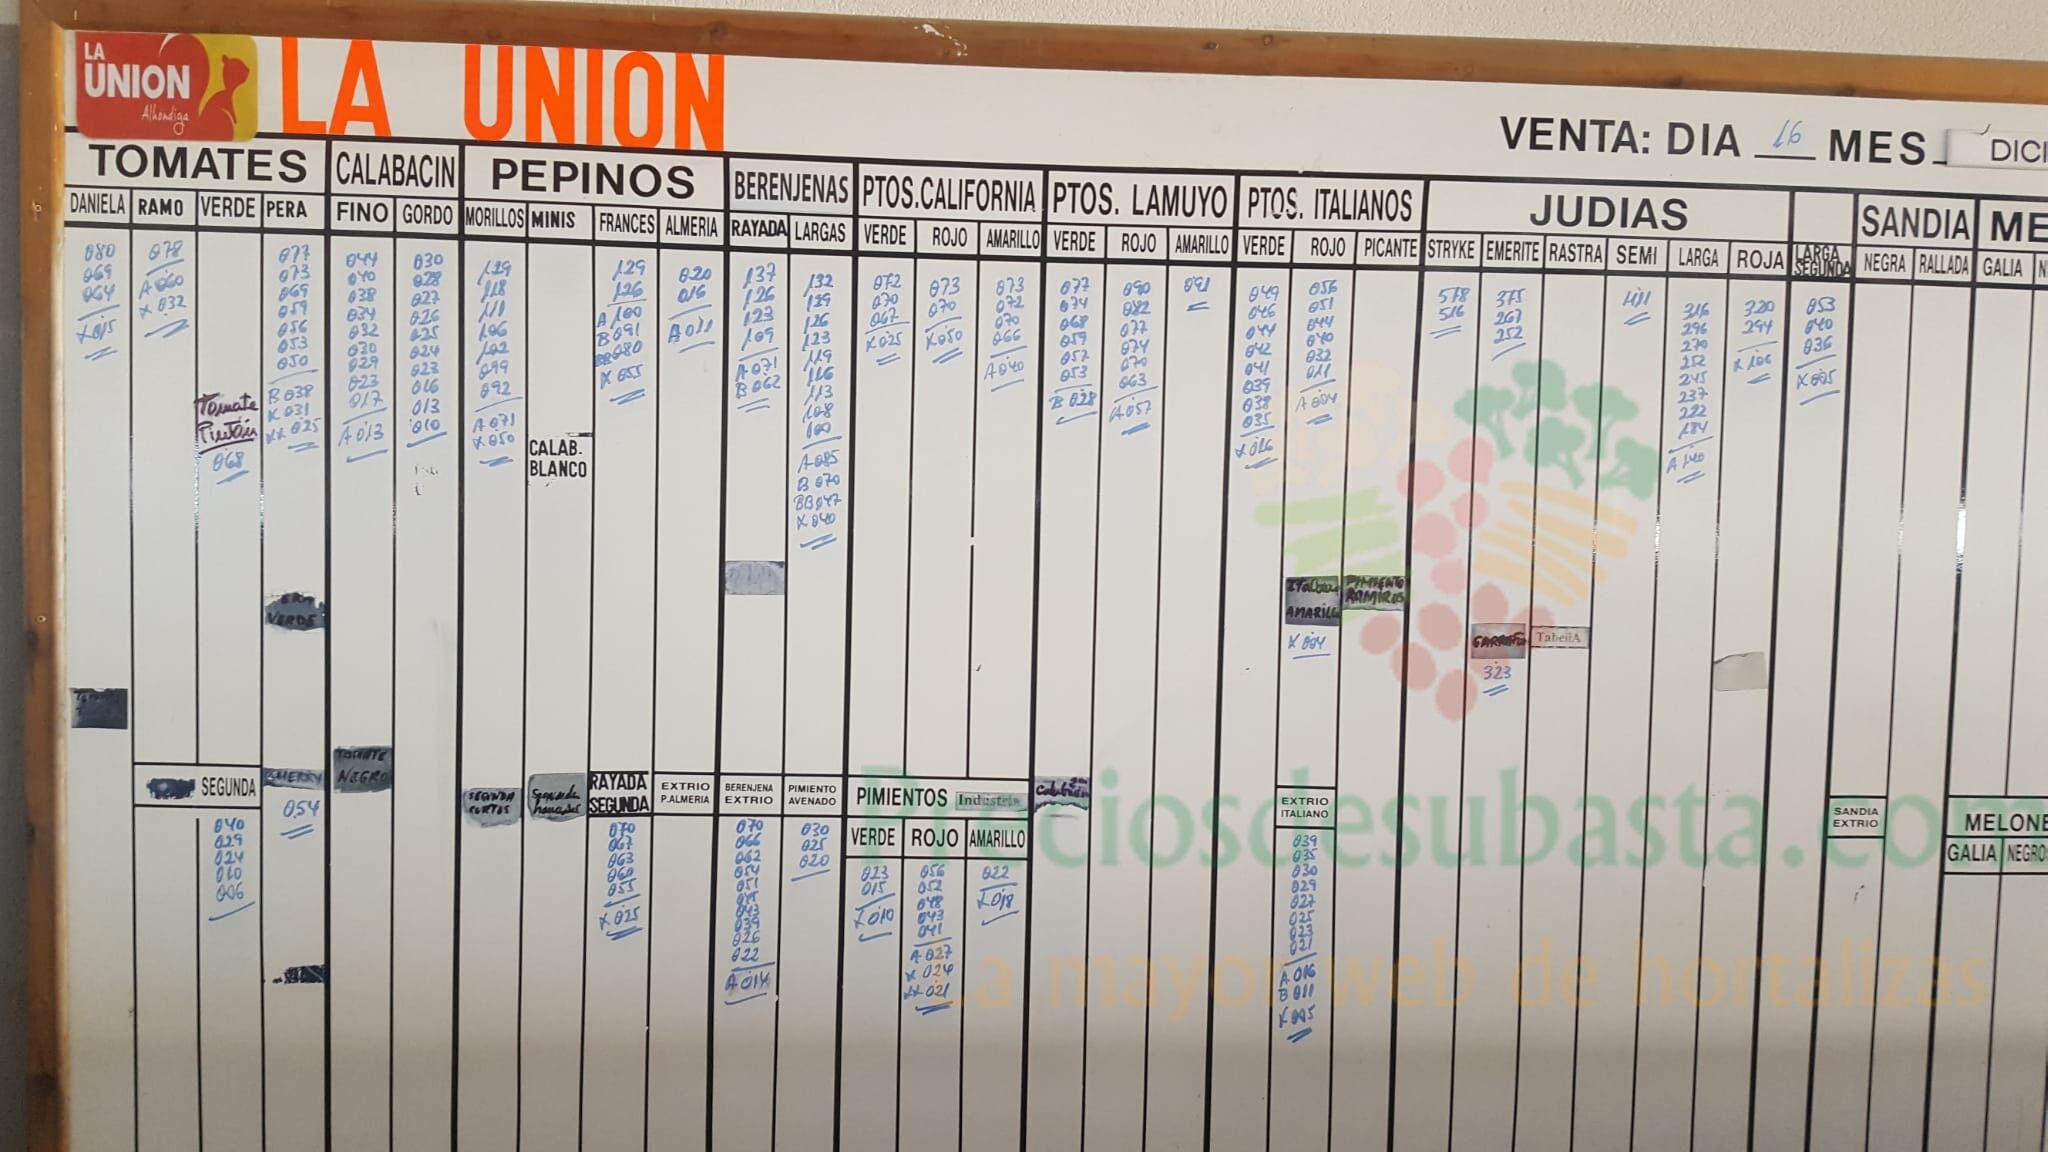 LA
UNION
Alhóndiga
LA UNION
VENTA: DIA 16 MES DICI
TOMATES CALABACIN PEPINOS BERENJENAS PTOS.CALIFORNIA PTOS. LAMUYO PTOS. ITALIANOS JUDIAS SANDIA ME
DANIELA RAMO VERDE PERA FINO GORDO MORILLOS MINIS FRANCES ALMERIA RAYADA LARGAS VERDE ROJO AMARILLO VERDE ROJO AMARILLO VERDE ROJO PICANTE STRYKE EMERITE RASTRA SEMI LARGA ROJA LARGA SEGUNDA NEGRA RALLADA GALIA
080
069
064
X 015
078
A 060
X 032
Tomate
Pintón
068
077
073
069
059
056
053
050
B 038
X 031
XX 025
044
040
038
034
032
030
029
023
017
A 013
030
028
027
026
025
024
023
016
013
010
129
118
111
106
102
099
092
A 071
X 050
CALAB.
BLANCO
129
126
A 100
B 091
BB 080
X 055
020
016
A 011
137
126
123
109
A 071
B 062
132
129
126
123
119
116
113
108
100
A 085
B 070
BB 047
X 040
072
070
067
X 025
073
070
X 050
073
072
070
066
A 040
077
074
068
059
057
053
B 028
090
082
077
074
070
063
A 057
091
049
046
044
042
041
039
038
035
X 016
056
051
044
040
032
011
A 004
AMARILLO
X 004
PIMIENTO
RAMIROS
578
516
375
267
252
GARRAFAL
323
TabellA
411
316
296
270
252
245
237
222
184
A 140
320
294
X 106
053
040
036
X 005
VERDE
SEGUNDA
040
029
024
010
006
CHERRY
054
TOMATE
NEGRO
SEGUNDA
CORTOS
Segunda
RAYADA
SEGUNDA
070
067
063
060
055
X 025
EXTRIO
P.ALMERIA
BERENJENA
EXTRIO
070
066
062
054
051
043
039
026
022
A 014
PIMIENTO
AVENADO
030
025
020
PIMIENTOS Industria
VERDE ROJO AMARILLO
023
015
X 010
056
052
048
043
041
A 027
X 024
XX 021
022
X 018
EXTRIO
ITALIANO
039
035
030
029
027
025
023
021
A 016
B 011
X 005
SANDIA
EXTRIO
MELONE
GALIA NEGRO
Preciosdesubasta.com
La mayor web de hortalizas